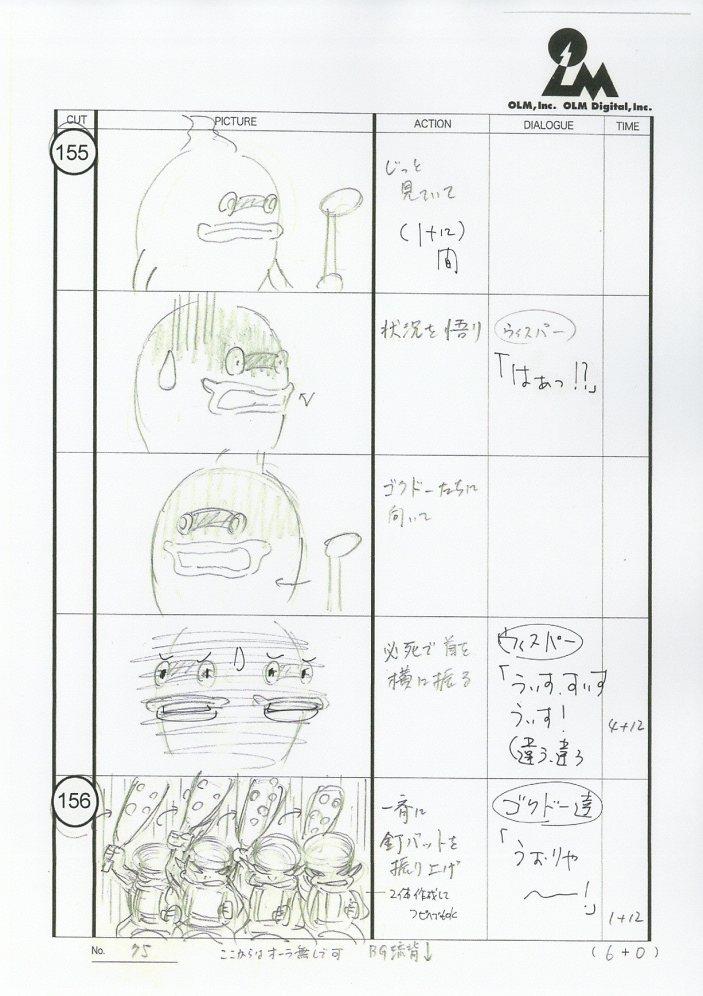 OLM, Inc. OLM Digital, Inc.
CUT PICTURE ACTION DIALOGUE TIME
155
じっと
見ていて
(1+12)
間
状況を悟り
ウィスパー
「はぁっ!?」
ゴクドーたちに
向いて
必死で首を
横に振る
ウィスパー
「うぃす、すぃす
うぃす!
(違う、違う
4+12
156
一斉に
釘バットを
振り上げ
2体作成して
ゴクドー達
「うおりゃ
〜!」
1+12
No. 75
ここからはオーラ無しで可
BG流背↓
(6+0)